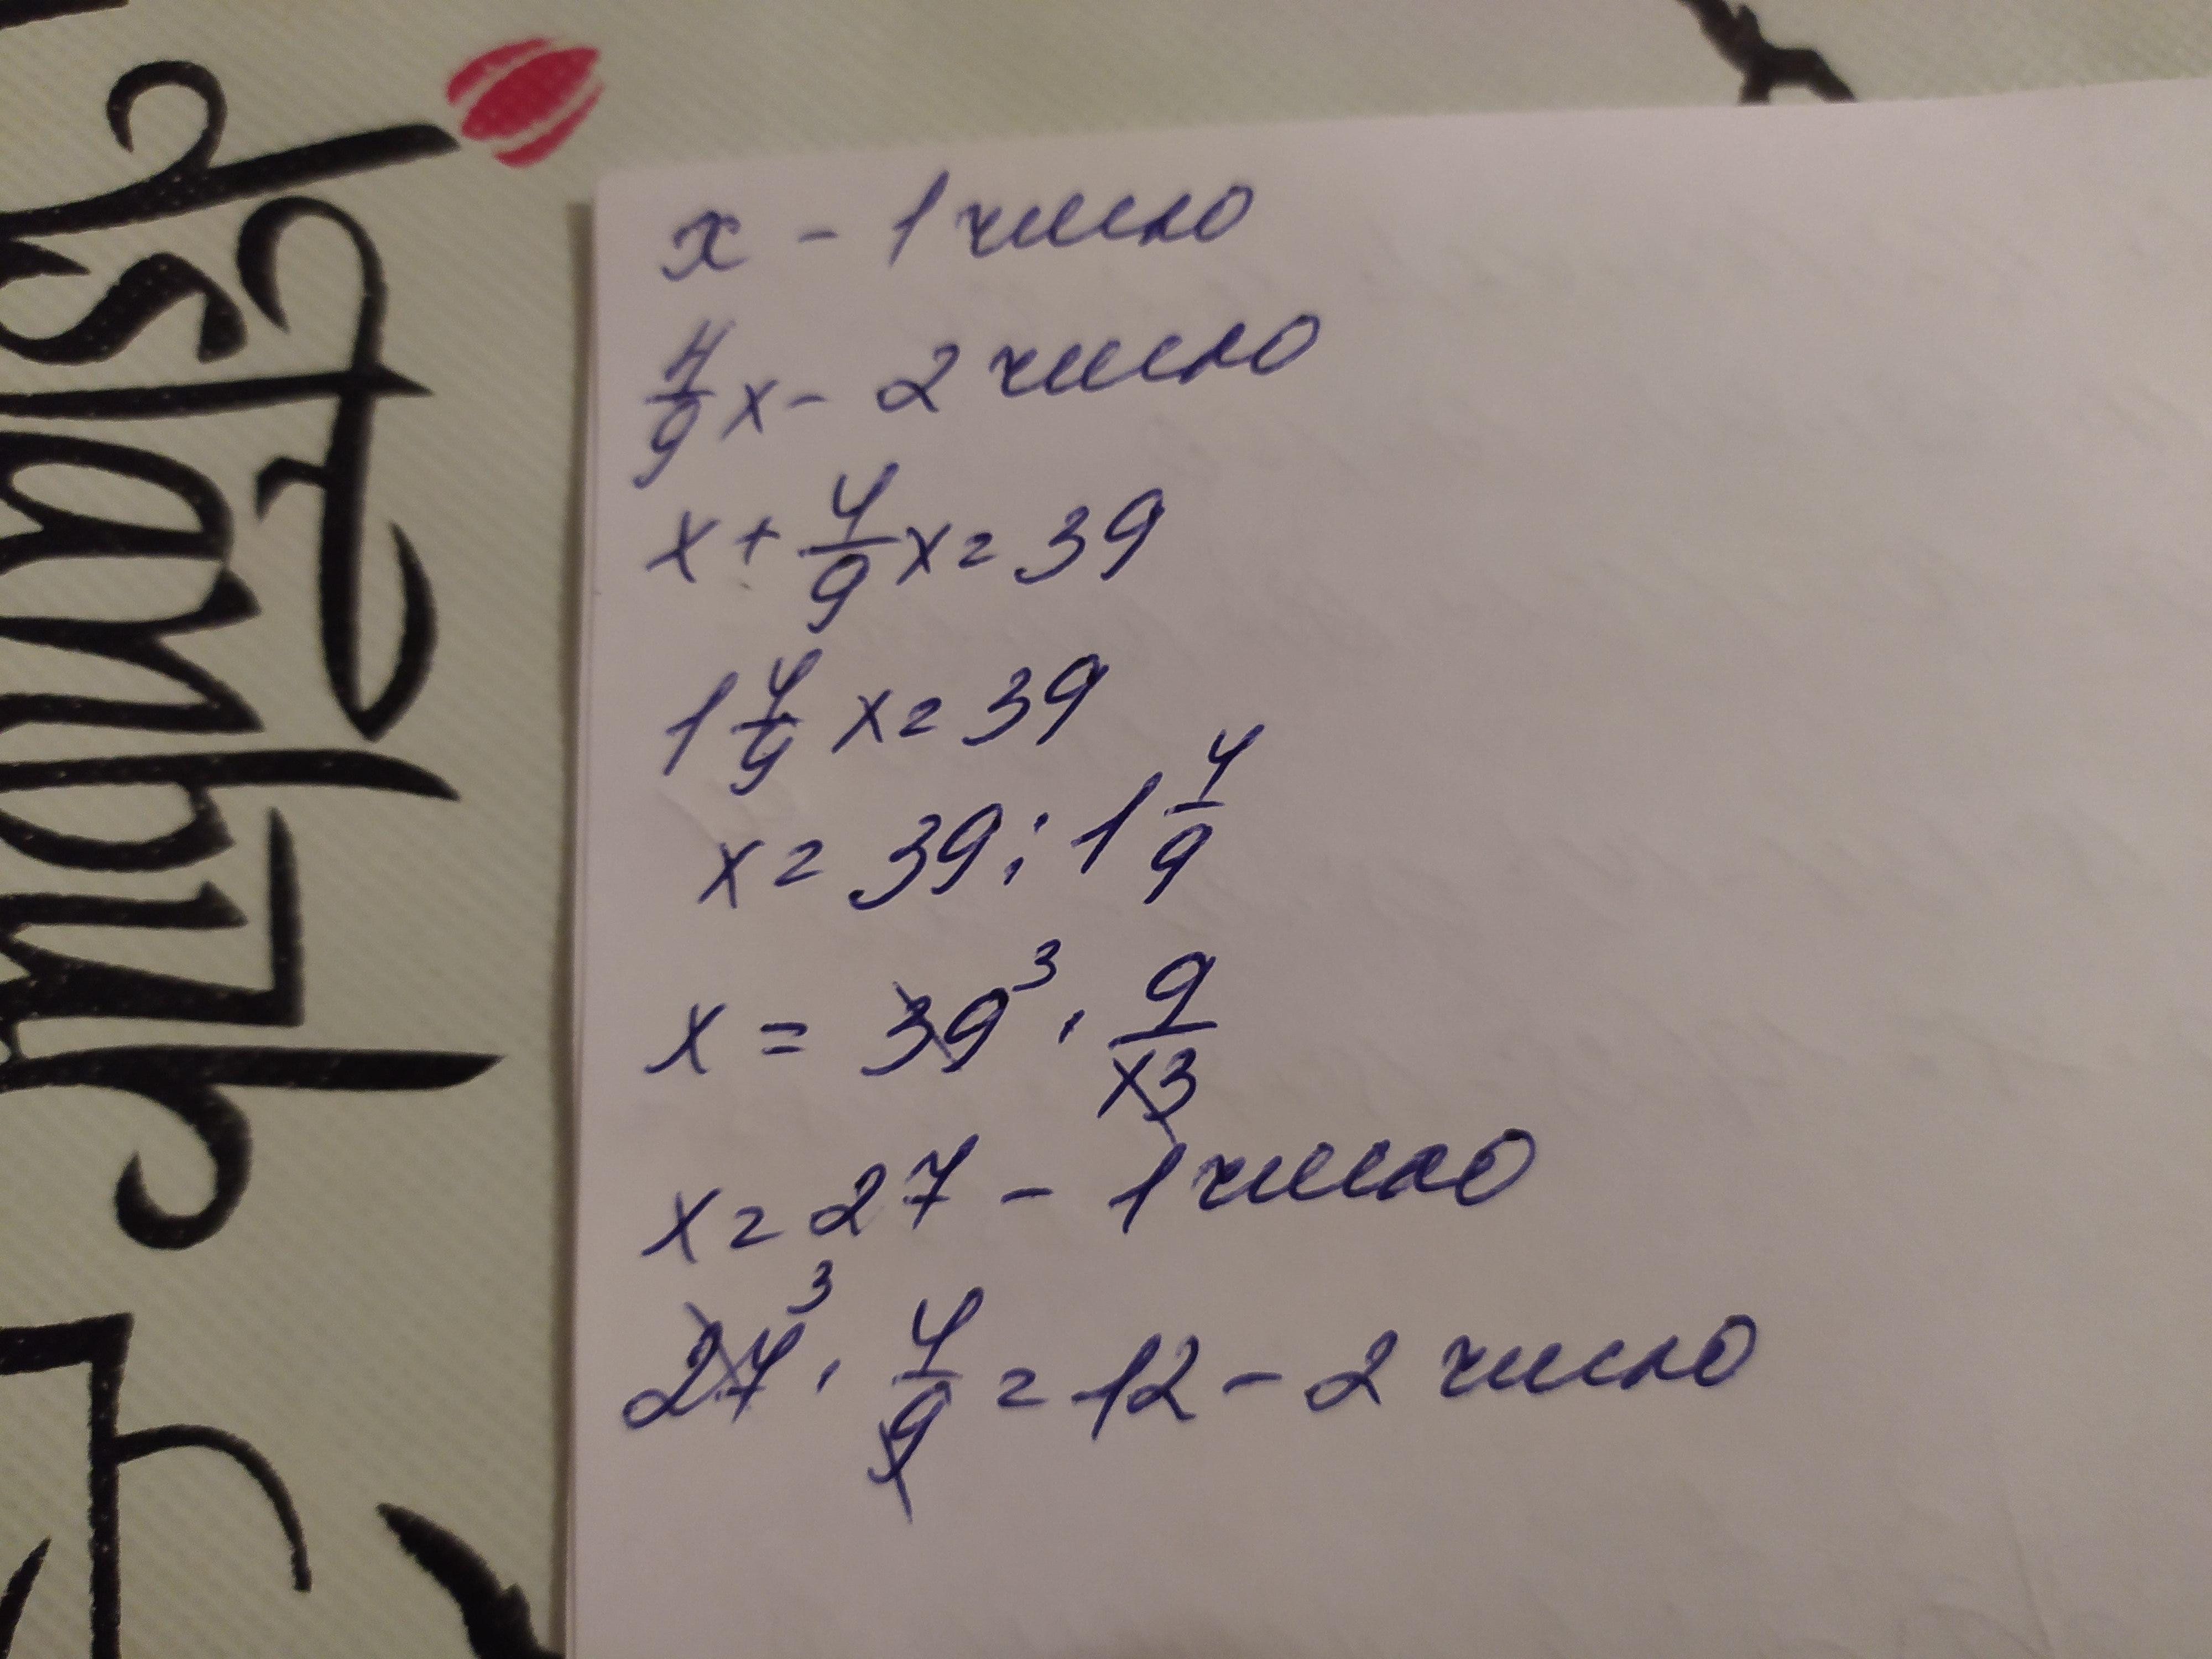 x - 1 число
4/9 x - 2 число
x + 4/9 x = 39
1 4/9 x = 39
x = 39 : 1 4/9
x = 39³ · 9/13
x = 27 - 1 число
27³ · 4/9 = 12 - 2 число